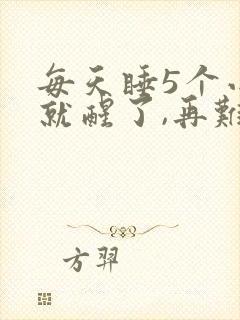 每天睡5个
就醒了,再难
方羿